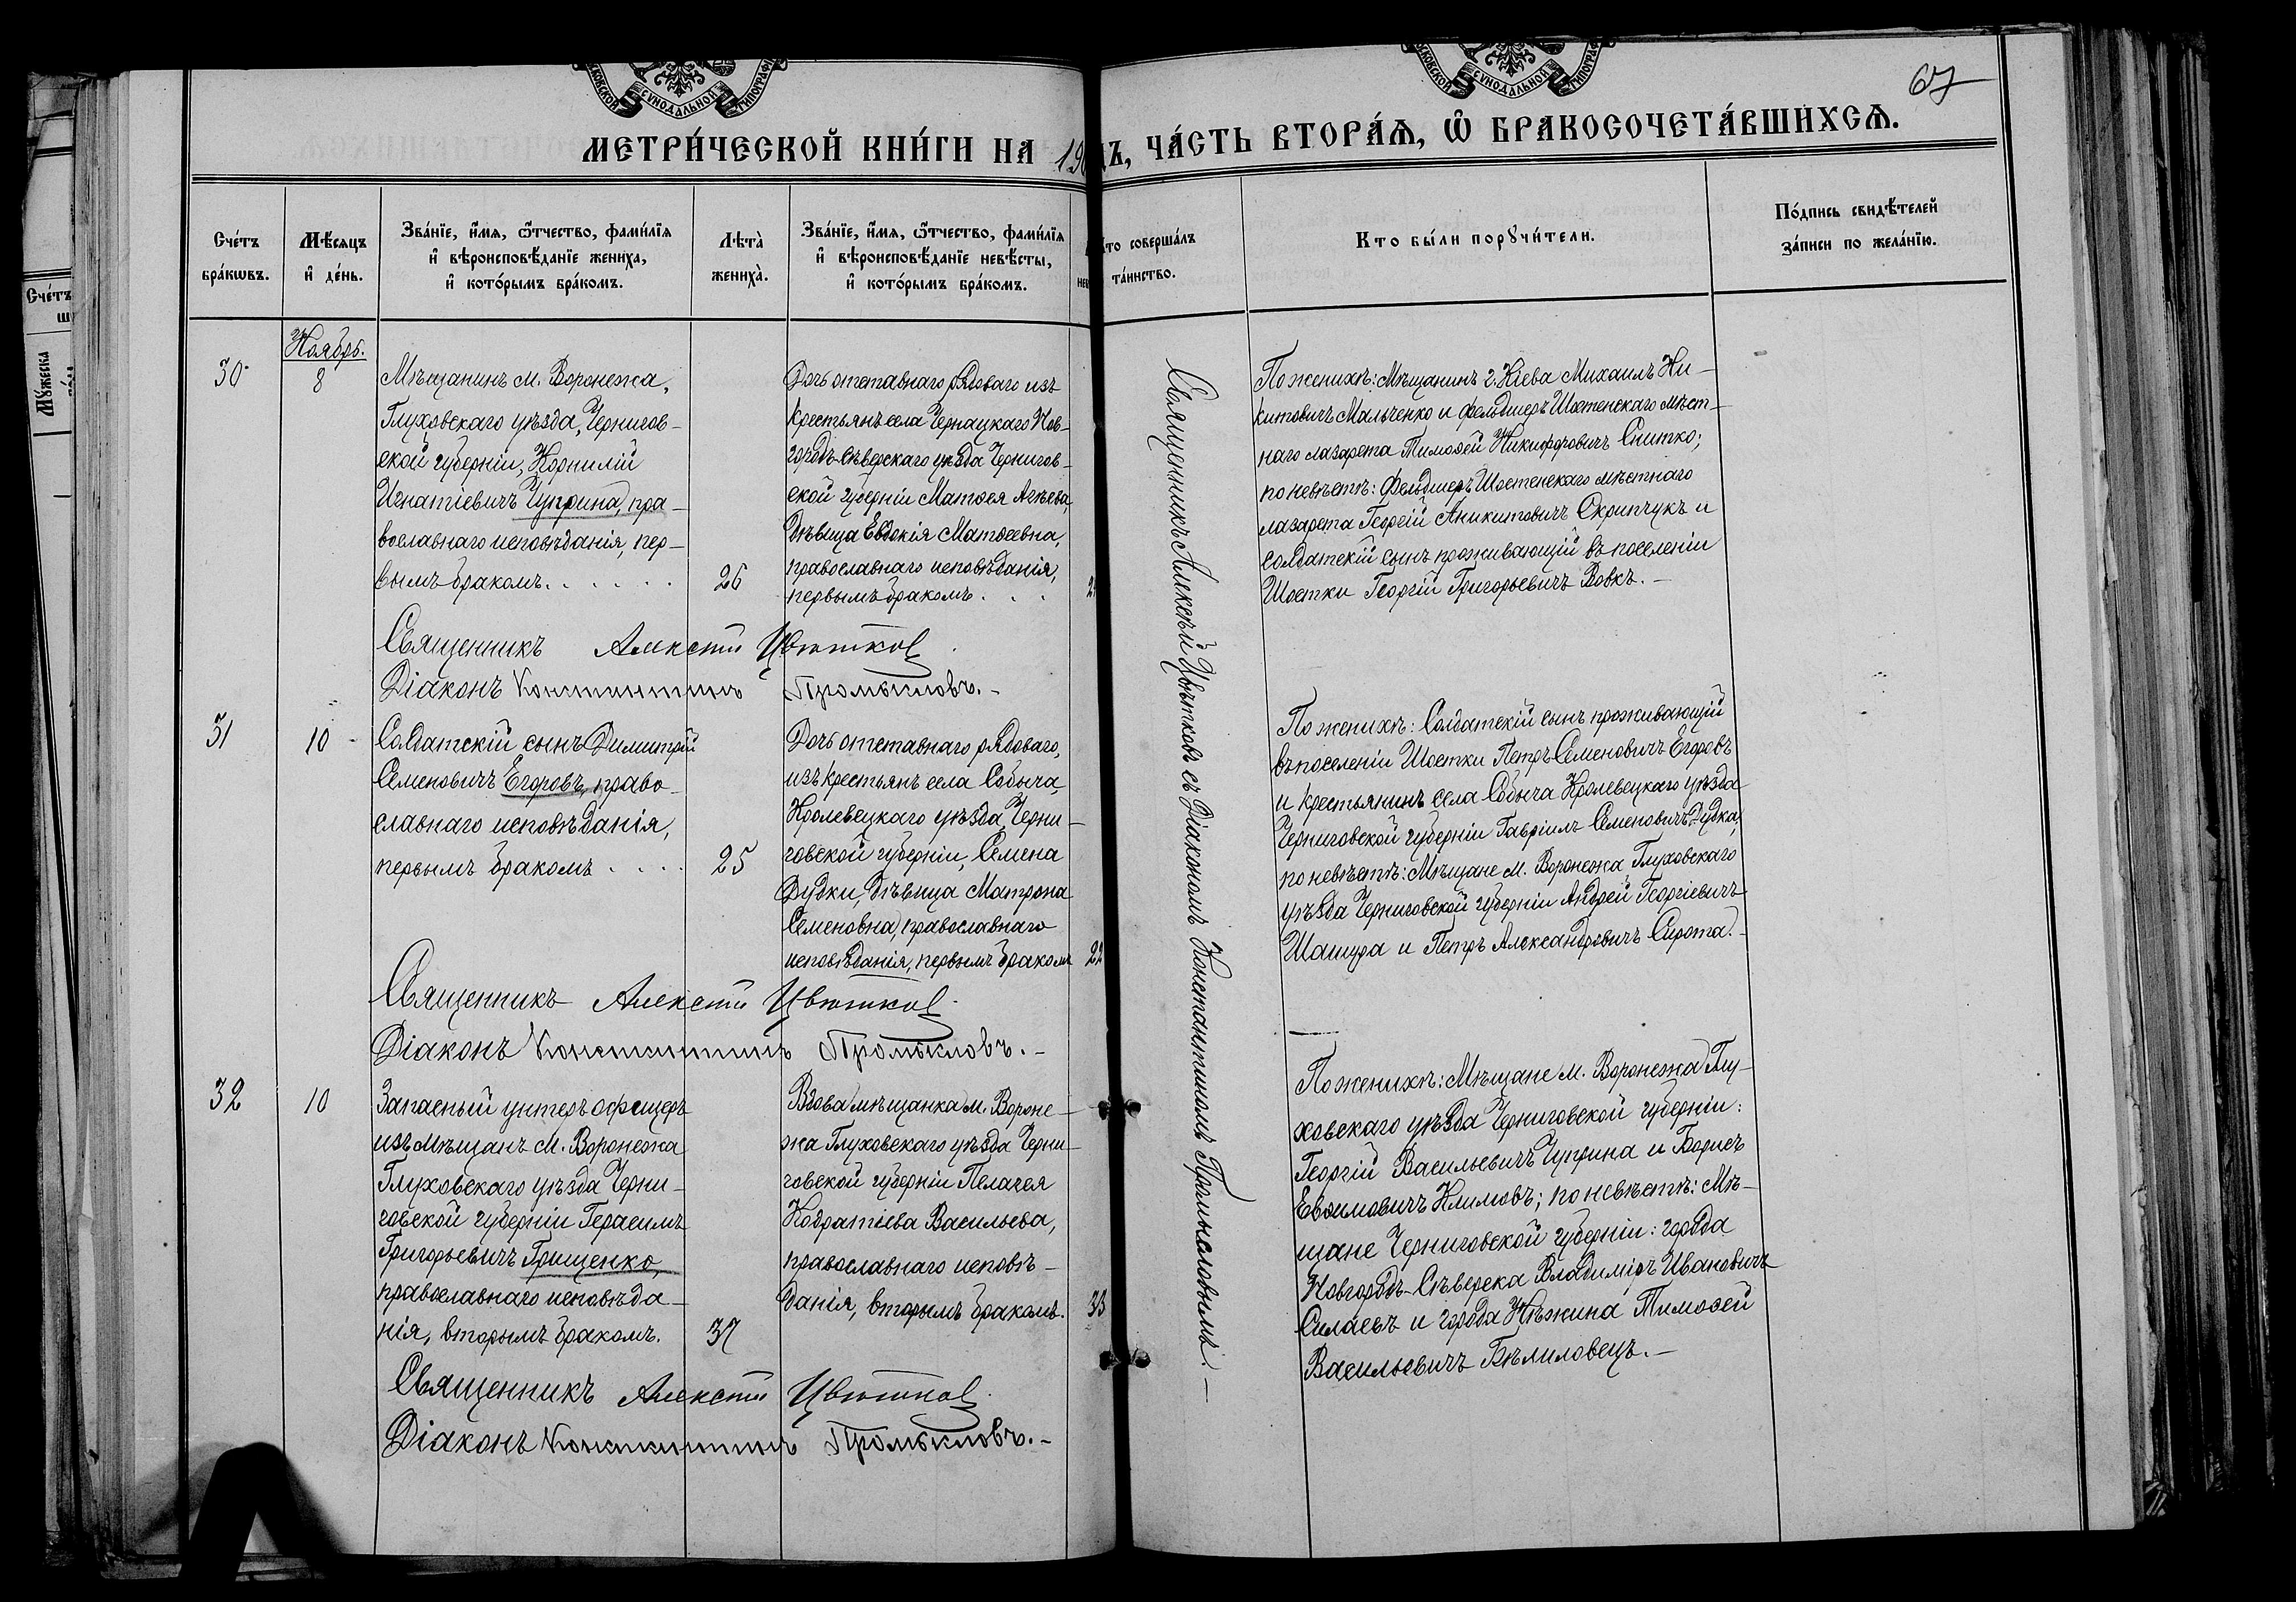 67
МЕТРИ́ЧЕСКОЙ КНИ́ГИ НА 19
Ъ, ЧА́СТЬ ВТОРА́Я, Ѡ БРАКОСОЧЕТА́ВШИХСЯ.
Сче́тъ бра́кѡвъ.
Мѣ́сяцъ и҆ де́нь.
Зва́нїе, и҆́мя, ѻ҆́тчество, фами́лїя
и҆ вѣроисповѣ́данїе жениха̀,
и҆ кото́рымъ бра́комъ.
Лѣта̀ жениха̀.
Зва́нїе, и҆́мя, ѻ҆́тчество, фами́лїя
и҆ вѣроисповѣ́данїе невѣ́сты,
и҆ кото́рымъ бра́комъ.
то соверша́лъ
та́инство.
Кто бы́ли порꙋчи́тели.
По́дпись свидѣ́телей
за́писи по жела́нїю.
Сче́тъ
Мꙋ́жеска
Ноябрь.
30
8
Мѣщанинъ м. Воронежа,
Глуховскаго уѣзда, Чернигов-
ской губерніи, Корнилій
Игнатіевичъ Чуприна, пра-
вославнаго исповѣданія, пер-
вымъ бракомъ. . . . . .
26
Дочь отставнаго рядоваго изъ
крестьянъ села Чернацкаго Нов-
городъ-Сѣверскаго уѣзда Чернигов-
ской губерніи Матѳея Агѣева,
дѣвица Евдокія Матѳеевна,
православнаго исповѣданія,
первымъ бракомъ. . .
По женихѣ: Мѣщанинъ г. Кіева Михаилъ Ни-
китовичъ Мальченко и фельдшеръ Шостенскаго мѣст-
наго лазарета Тимоѳей Никифоровичъ Снитко;
по невѣстѣ: фельдшеръ Шостенскаго мѣстнаго
лазарета Георгій Аникитовичъ Скрипчукъ и
солдатскій сынъ проживающій въ поселеніи
Шостки Георгій Григорьевичъ Вовкъ. -
Священникъ Алексѣй Цвѣтковъ
Діаконъ Константинъ Промысловъ. -
Священникъ Алексѣй Цвѣтковъ съ Діакономъ Константиномъ Промысловымъ. -
31
10
Солдатскій сынъ Димитрій
Семеновичъ Егоровъ, право-
славнаго исповѣданія,
первымъ бракомъ . . . .
25
Дочь отставнаго рядоваго,
изъ крестьянъ села Собыча,
Кролевецкаго уѣзда, Черни-
говской губерніи, Семена
Дудки, дѣвица Матрона
Семеновна, православнаго
исповѣданія, первымъ бракомъ
22
По женихѣ: Солдатскій сынъ проживающій
въ поселеніи Шостки Петръ Семеновичъ Егоровъ
и крестьянинъ села Собыча Кролевецкаго уѣзда
Черниговской губерніи Гавріилъ Семеновичъ Дудка;
по невѣстѣ: Мѣщане м. Воронежа, Глуховскаго
уѣзда Черниговской губерніи Андрей Георгіевичъ
Шашура и Петръ Александровичъ Сирота. -
Священникъ Алексѣй Цвѣтковъ
Діаконъ Константинъ Промысловъ. -
32
10
Запасный унтеръ офицеръ
изъ мѣщанъ м. Воронежа
Глуховскаго уѣзда Черни-
говской губерніи Герасимъ
Григорьевичъ Грищенко,
православнаго исповѣда-
нія, вторымъ бракомъ.
37
Вдова мѣщанка м. Вороне-
жа Глуховскаго уѣзда Черни-
говской губерніи Пелагея
Кодратіева Васильева,
православнаго исповѣ-
данія, вторымъ бракомъ.
33
По женихѣ: Мѣщане м. Воронежа Глу-
ховскаго уѣзда Черниговской губерніи:
Георгій Васильевичъ Чуприна и Борисъ
Евѳимовичъ Климовъ; по невѣстѣ: Мѣ-
щане Черниговской губерніи: города
Новгородъ-Сѣверска Владиміръ Ивановичъ
Силаевъ и города Нѣжина Тимоѳей
Васильевичъ Бѣлиловецъ. -
Священникъ Алексѣй Цвѣтковъ
Діаконъ Константинъ Промысловъ. -